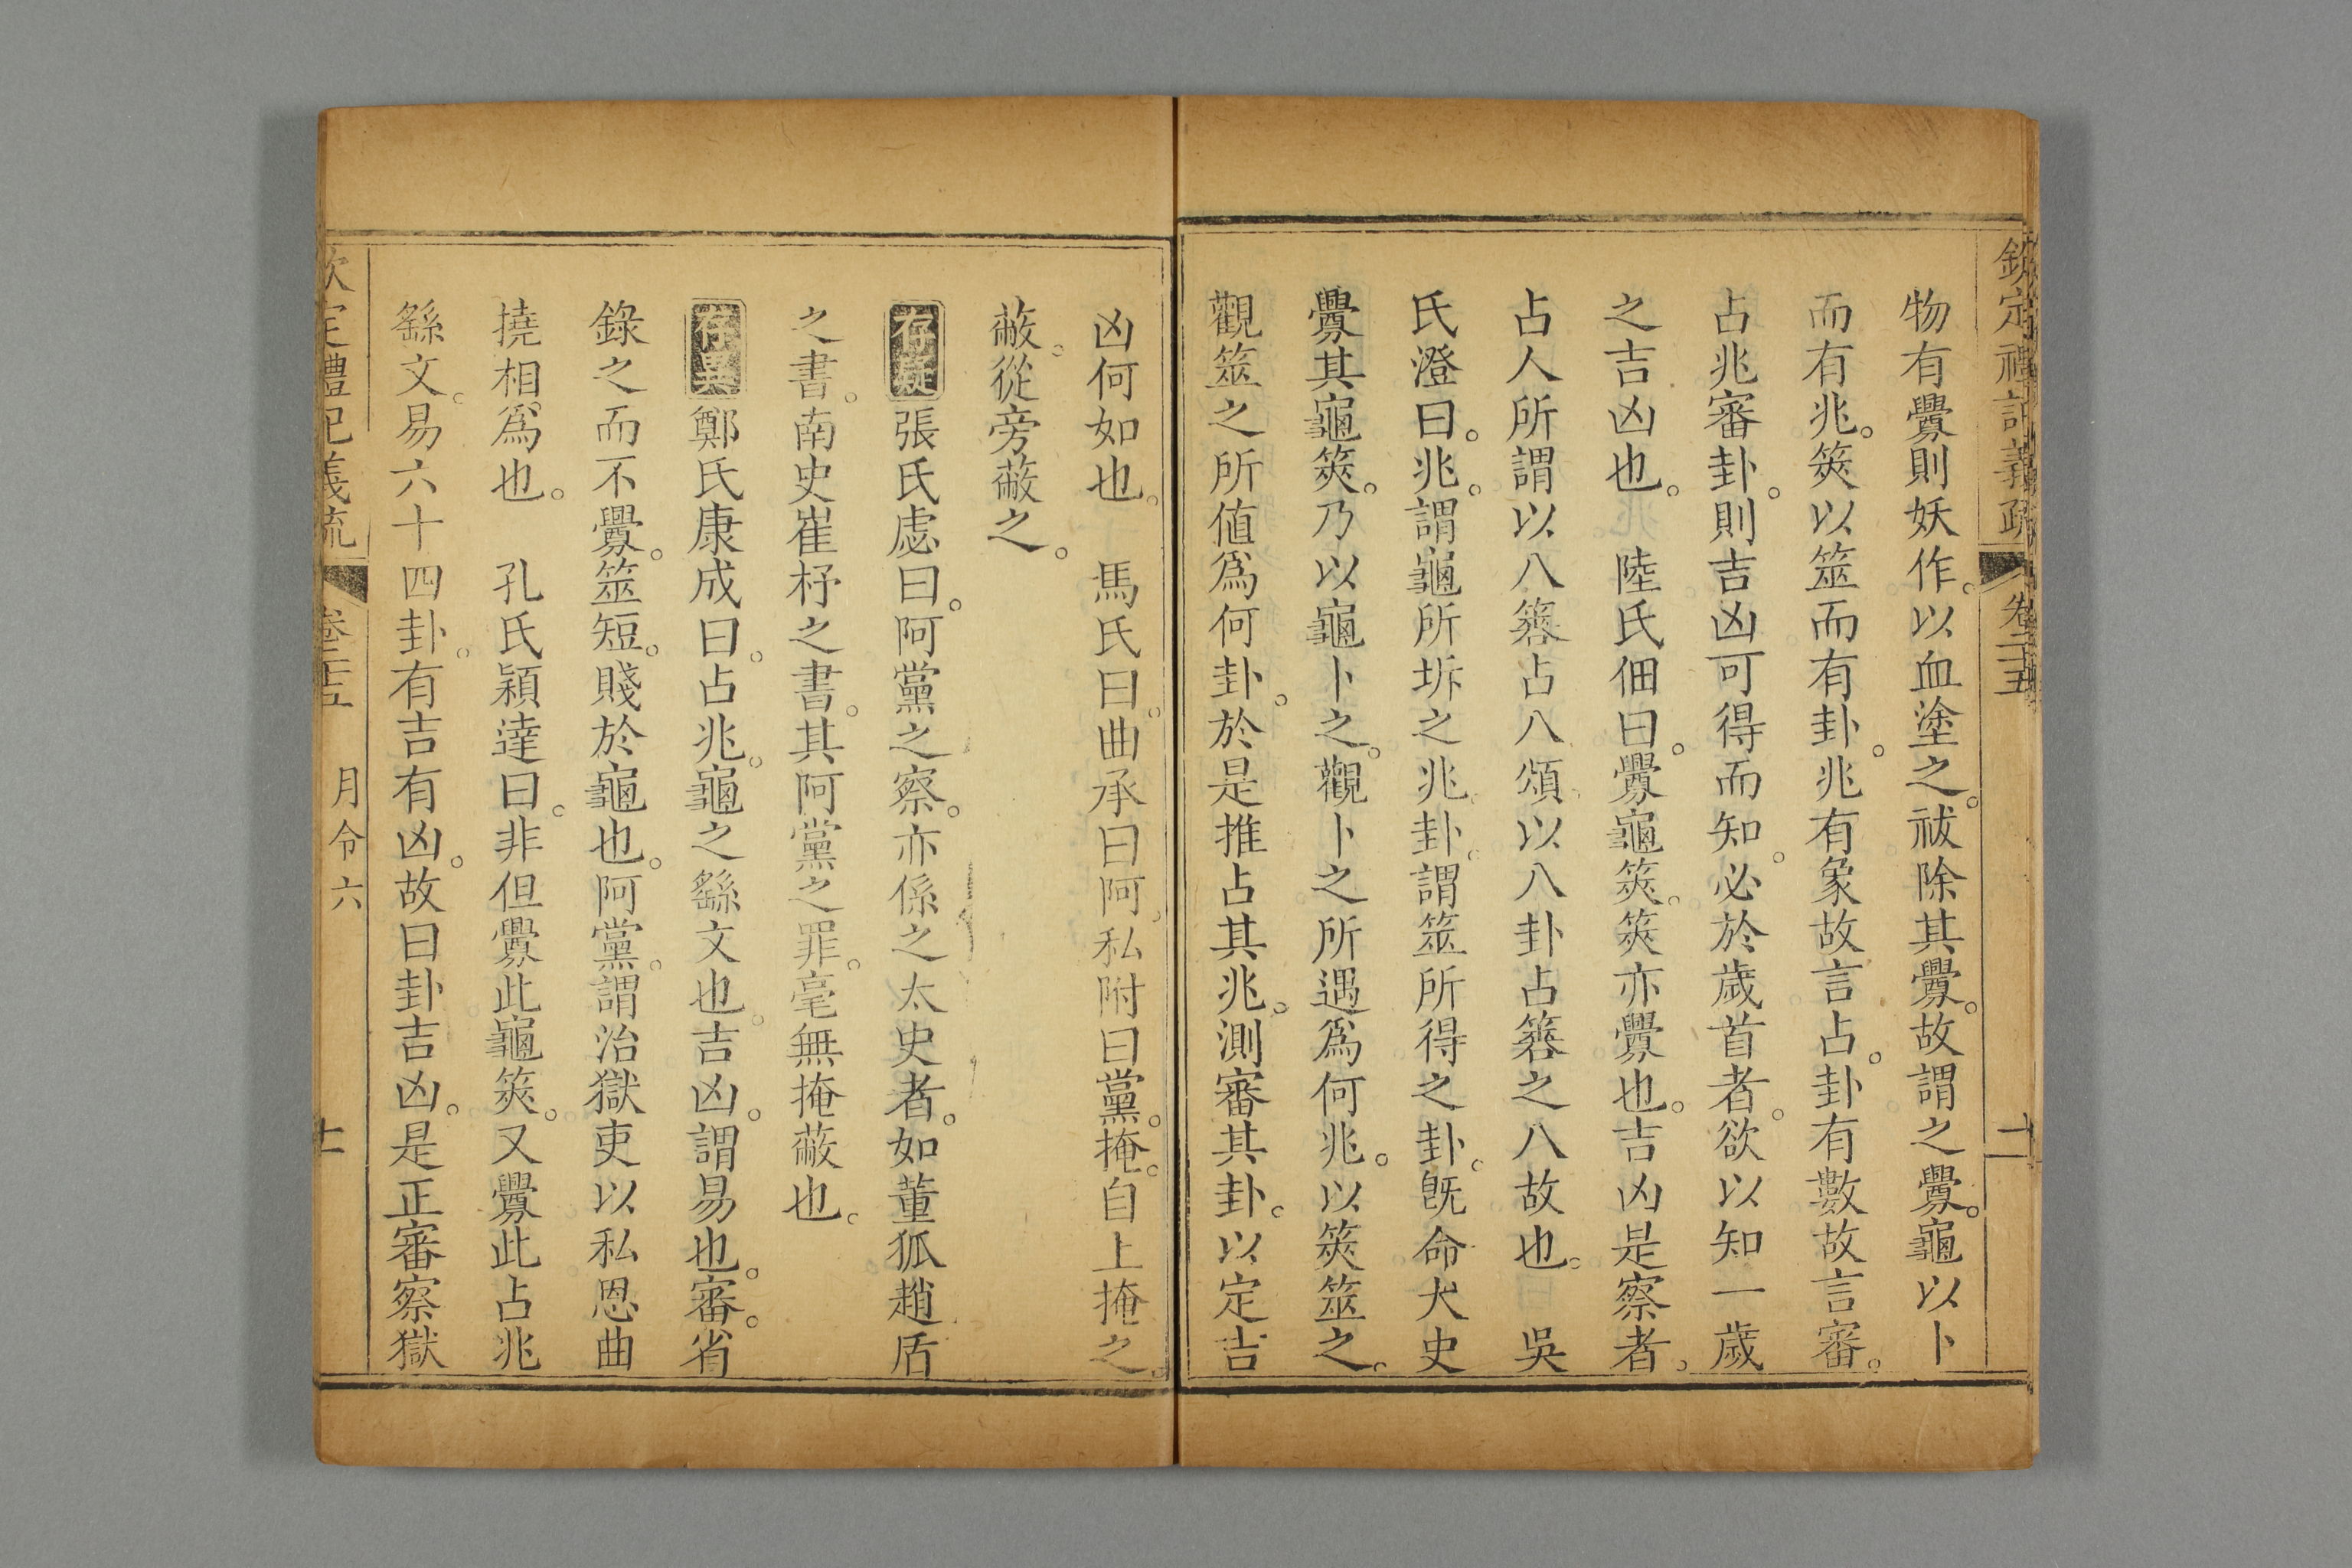 欽定禮記義疏 卷二十五
物有釁則妖作。以血塗之。祓除其釁。故謂之釁。龜以卜
而有兆。筴以筮而有卦。兆有象故言占。卦有數故言審。
占兆審卦。則吉凶可得而知。必於歲首者。欲以知一歲
之吉凶也。 陸氏佃曰。釁龜筴。筴亦釁也。吉凶是察者。
占人所謂以八簭占八頌以八卦占簭之八故也。 吳
氏澄曰。兆。謂龜所坼之兆。卦。謂筮所得之卦。旣命太史
釁其龜筴。乃以龜卜之。觀卜之所遇爲何兆。以筴筮之。
觀筮之所値爲何卦。於是推占其兆。測審其卦。以定吉
凶何如也。 馬氏曰。曲承曰阿。私附曰黨。掩。自上掩之。
蔽。從旁蔽之。
存疑 張氏慮曰。阿黨之察。亦係之太史者。如董狐趙盾
之書。南史崔杼之書。其阿黨之罪。毫無掩蔽也。
存異 鄭氏康成曰。占兆。龜之繇文也。吉凶。謂易也。審。省
錄之而不釁。筮短。賤於龜也。阿黨。謂治獄吏以私恩曲
撓相爲也。 孔氏穎達曰。非但釁此龜筴。又釁此占兆
繇文。易六十四卦。有吉有凶。故曰卦吉凶。是正審察獄
欽定禮記義疏 卷二十五 月令六